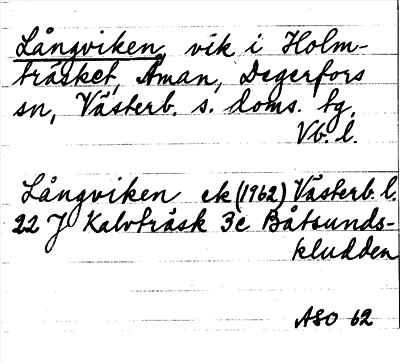 Långviken, vik i Holm-
träsket, Åman, Degerfors
sn, Västerb. s. doms. tg,
Vb. l.
Långviken ek (1962) Västerb. l.
22 J Kalvträsk 3c Båtsunds-
kludden
ASO 62